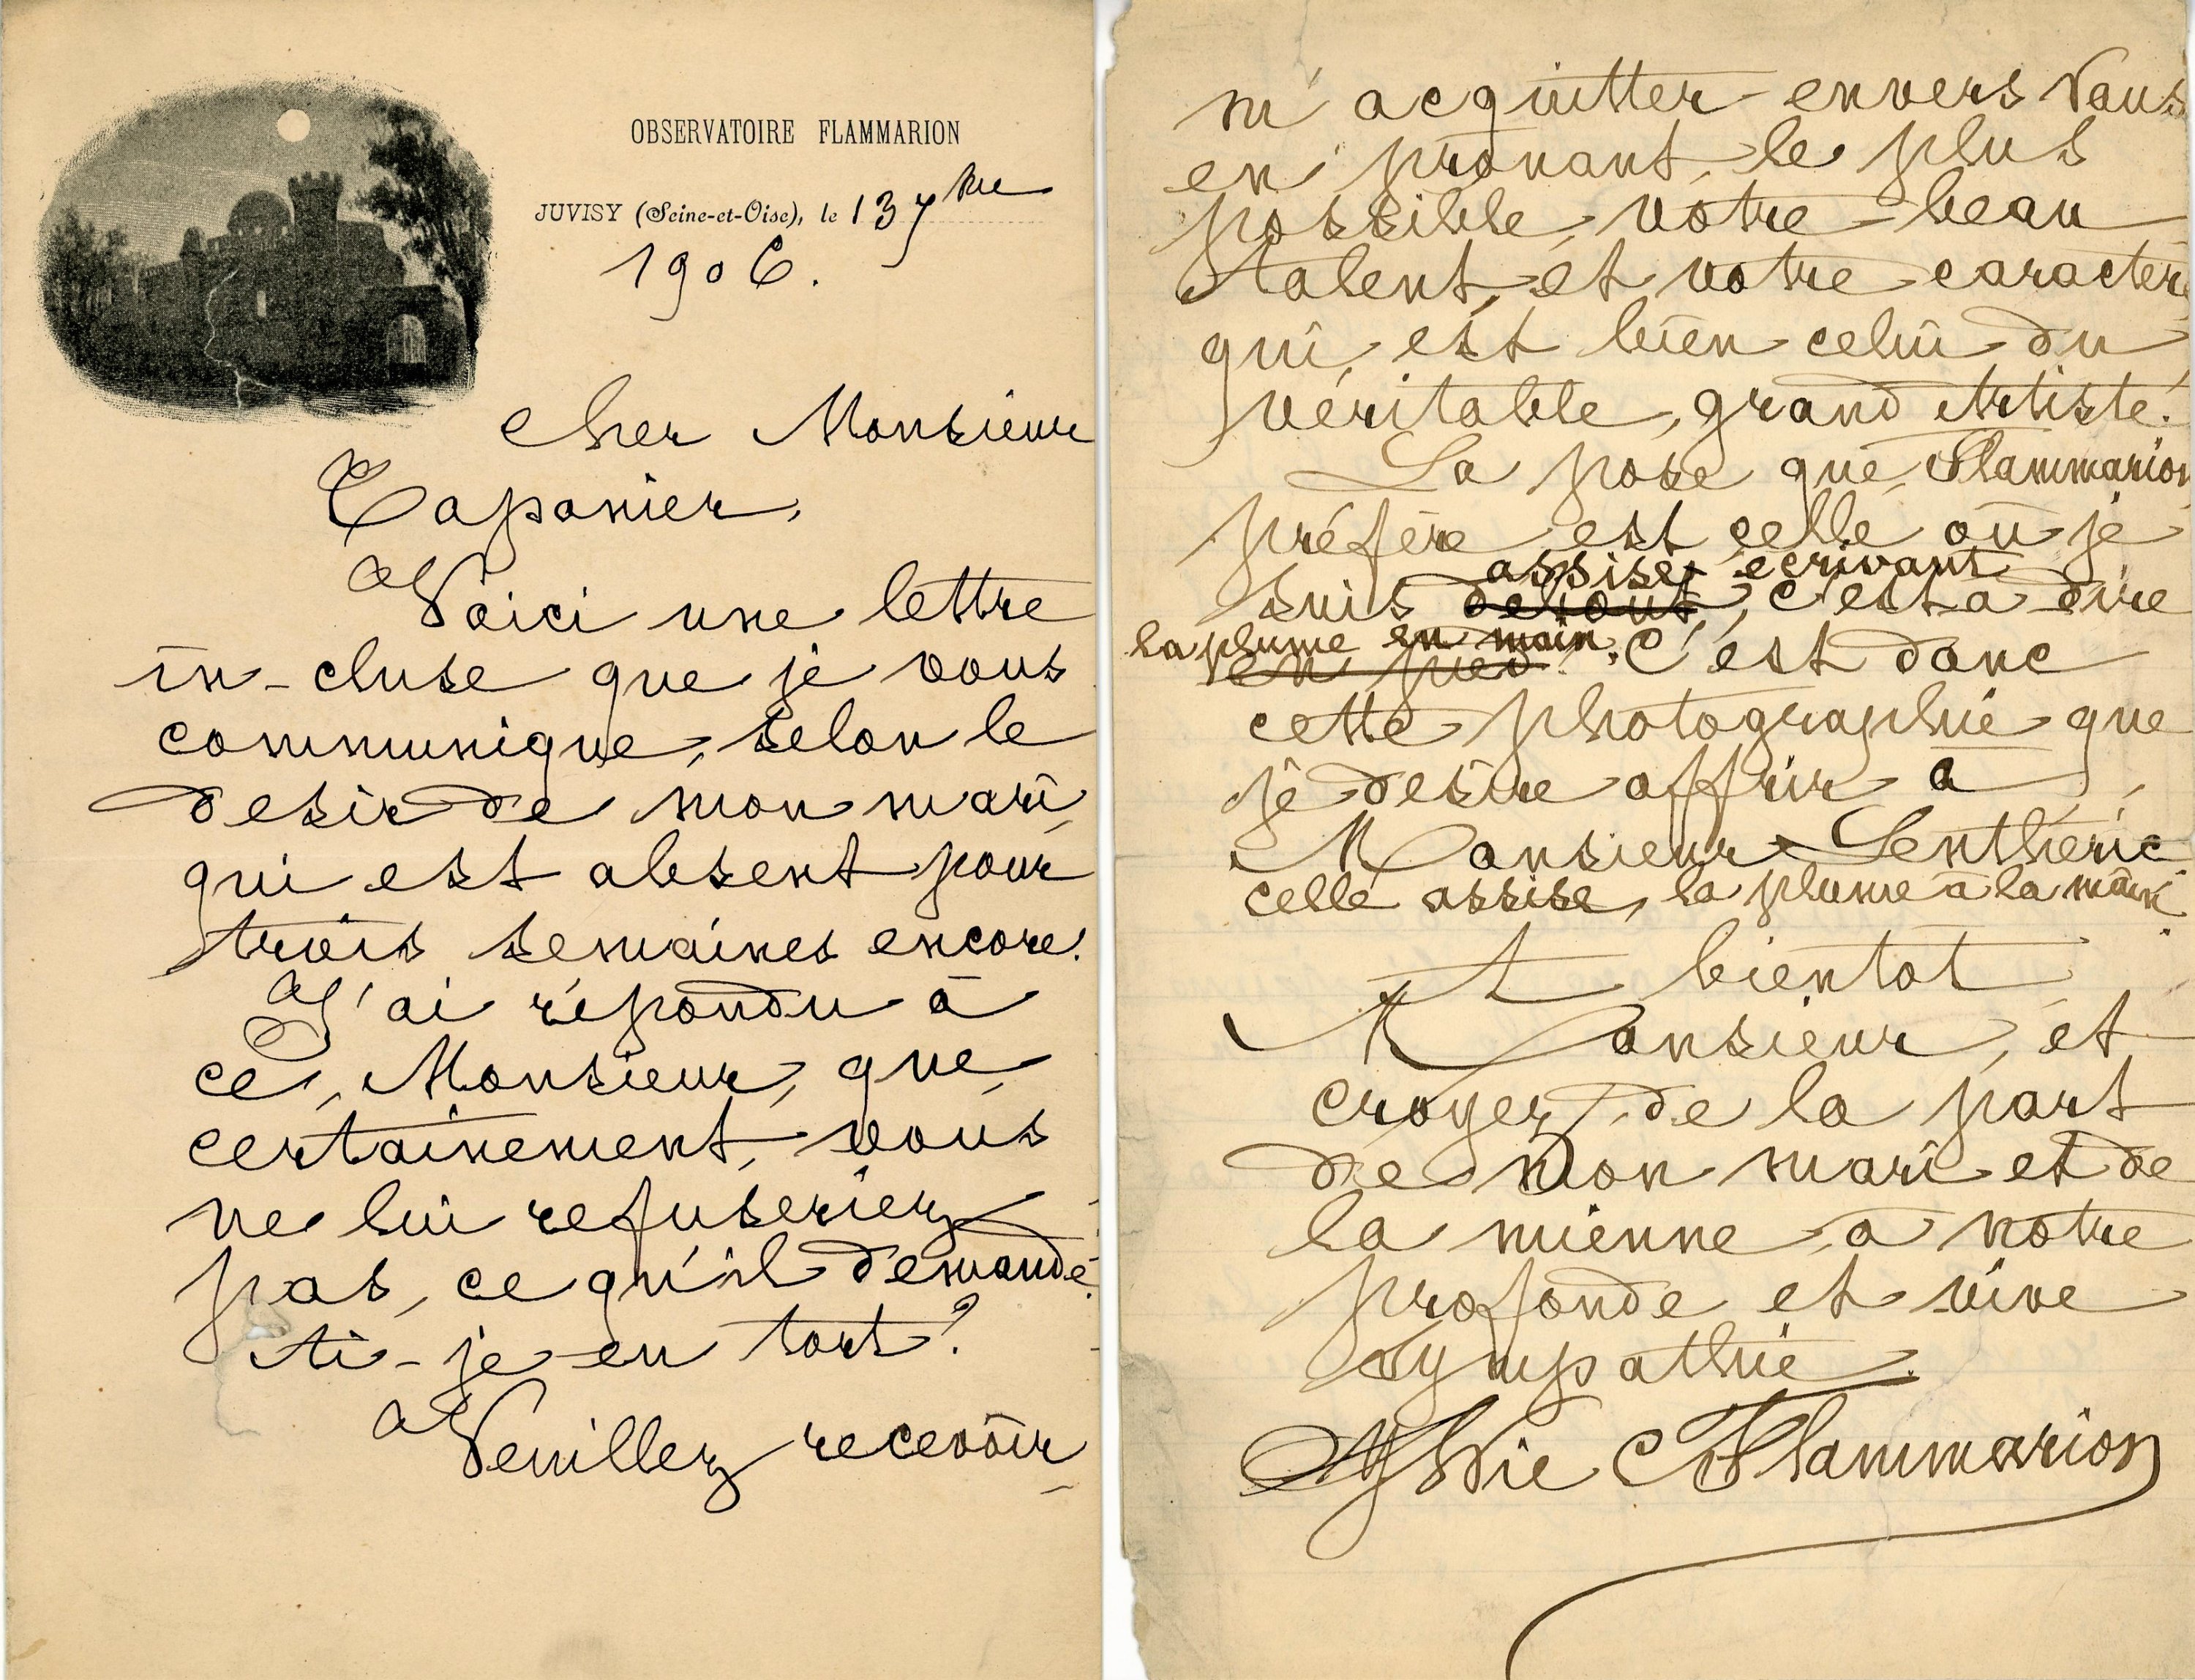 OBSERVATOIRE FLAMMARION
JUVISY (Seine-et-Oise), le 13 7bre
1906.
Cher Monsieur
Caponier,
Voici une lettre
in-cluse que je vous
communique, selon le
desir de mon mari,
qui est absent pour
trois semaines encore.
J'ai répondu à
ce, Monsieur, que,
certainement, vous
ne lui refuseriez
pas, ce qu'il demande.
Ai-je eu tort?
Veuillez recevoir
m'acquitter envers Vous
en pronant, le plus
possible, votre beau
talent, et votre caractère
qui, est bien celui du
véritable, grand Artiste.
La pose que, Flammarion
préfère est celle où je
assise, écrivant
suis debout, c'est à dire
la plume en main.
en pied. C'est donc
cette photographie que
je desire offrir à
Monsieur Lentheric
celle assise, la plume à la main.
A bientot
Monsieur, et
croyez, de la part
de Mon mari et de
la mienne à notre
profonde et vive
sympathie.
Sylvie C Flammarion